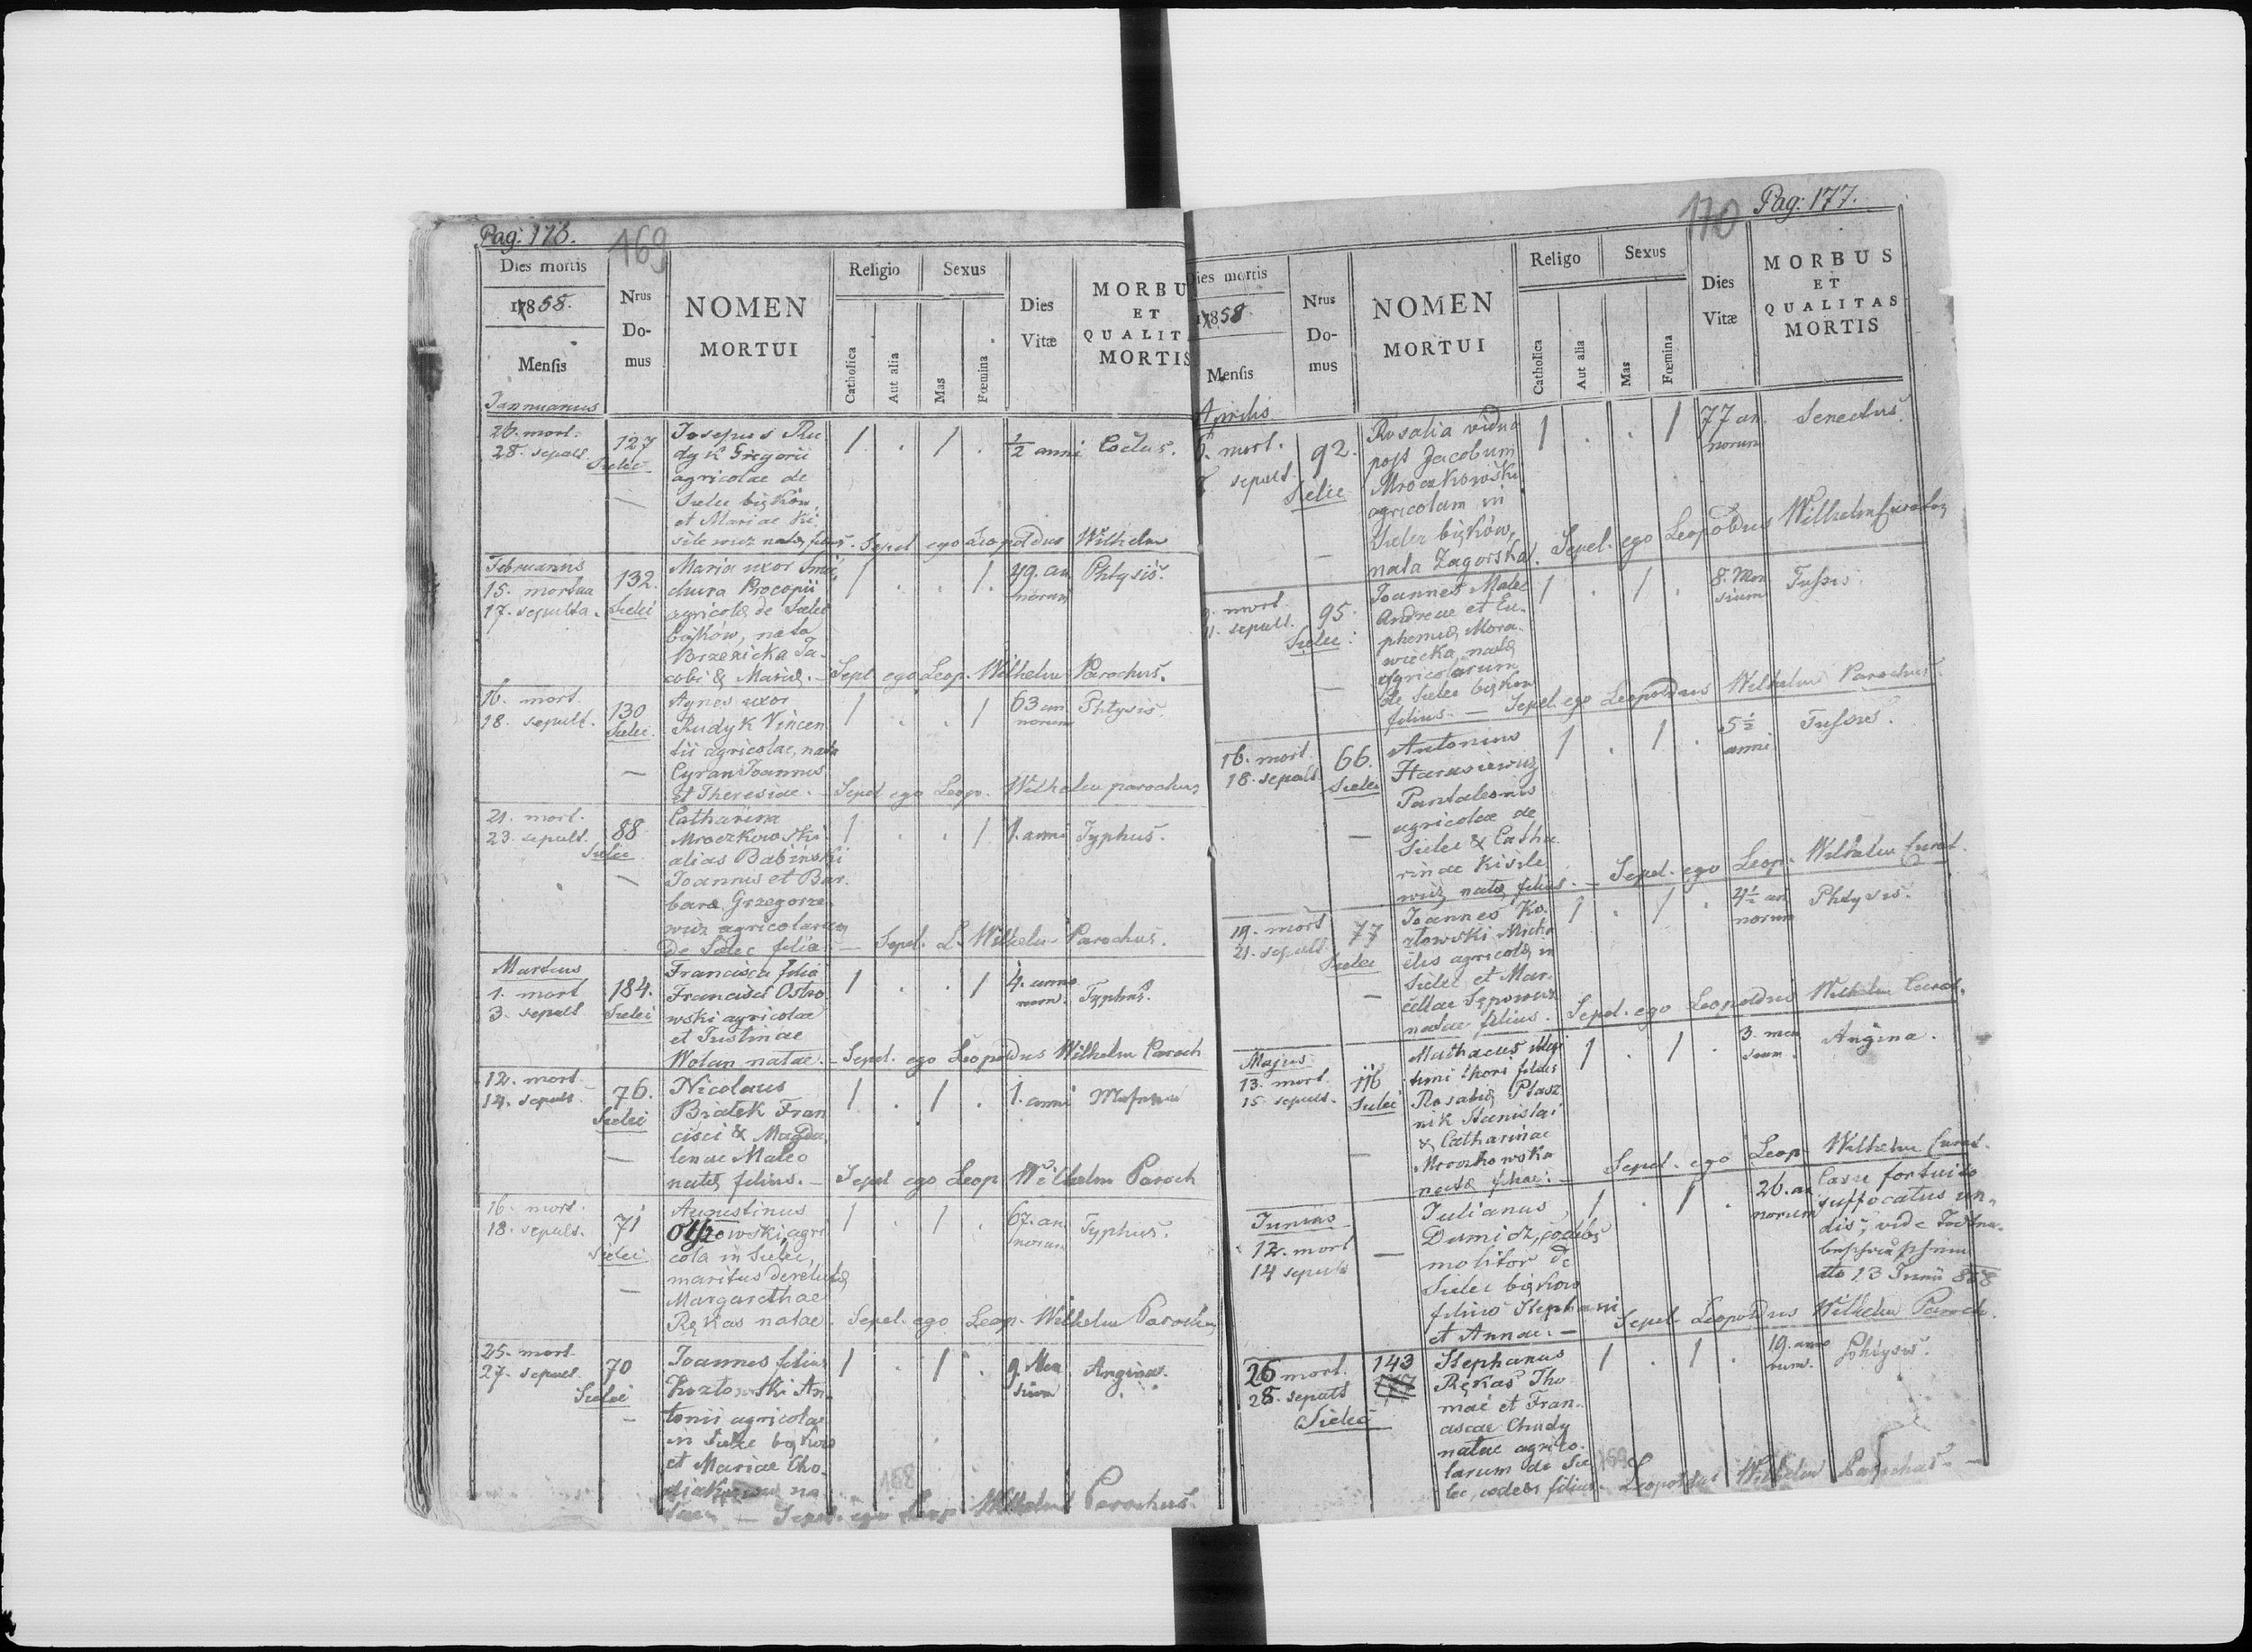 Pag: 176.
169
Dies mortis
1858.
Mensis
Nrus
Do-
mus
NOMEN
MORTUI
Religio
Catholica
Aut alia
Sexus
Mas
Fœmina
Dies
Vitæ
MORBU
ET
QUALIT
MORTIS
Januarius
26. mort.
28. sepult.
127
Sielec
Josephus Ru
dyk Gregorii
agricolae de
Sielec bięków
et Mariae Ki
sile wicz natę filius. Sepel ego Leopoldus Wilhelm
1 . 1 .
½ anni
Februarius
15. mortua
17. sepulta.
132.
Sielec
Maria uxor
chura Procopii
agricolę de Sielec
bięków, nata
Brzezicka Ja-
cobi & Marię. - Sepel ego Leop. Wilhelm Parochus.
1 . . 1.
49. an
norum
Phtysis.
16. mort.
18. sepult.
130
Sielec.
Agnes uxor
Rudyk Vincen
tii agricolae, nata
Cyran Joannis
et Theresiae. - Sepel ego Leop. Wilhelm parochus
1 . . 1
63 an
norum
Phtysis.
21. mort.
23. sepult.
88
Sielec
Catharina
Mroczkowski
alias Babiński
Joannis et Bar.
bara Grzegorze
wicz agricolarum
de Sielec filia - Sepel. L. Wilhelm Parochus.
1 . . 1
1. anni
Typhus.
Martius
1. mort
3. sepult
184.
Sielec
Francisca filia
Francisci Ostro
wski agricolae
et Justinae
Wolan natae. - Sepel. ego Leopoldus Wilhelm Paroch
1 . . 1
4. anno
rum.
Typhus.
12. mort.
14. sepult
76.
Sielec
Nicolaus
Białek Fran
cisci & Magda
lenae Malec
natę filius. - Sepel ego Leop. Wilhelm Paroch
1 . 1 .
1. anni
16. mort.
18. sepult.
71
Sielec
Augustinus
Ostrowski, agri
cola in Sielec,
maritus derelictę
Margarethae
Rękas natae. Sepel. ego Leop. Wilhelm Parochus
1 . 1 .
67. an
norum
Typhus.
25. mort.
27. sepult.
70
Sielec
Joannes filius
Kozłowski An-
tonii agricolae
in Sielec bięków
et Mariae Cho-
na
— Sepel. ego Leop. Wilhelm Parochus.
1 . 1 .
9. Men
sium
Angina.
168
Pag: 177.
170
Dies mortis
1858
Mensis
Nrus
Do-
mus
NOMEN
MORTUI
Religo
Catholica
Aut alia
Sexus
Mas
Fœmina
Dies
Vitæ
MORBUS
ET
QUALITAS
MORTIS
Aprilis
6. mort.
8 sepult.
92.
Sielec
Rosalia vidua
post Jacobum
Mroczkowski
agricolam in
Sielec bięków,
nata Zagorska. Sepel. ego Leopoldus Wilhelm Curatus
1 . . 1
77 an
norum
Senectus.
9. mort.
11. sepult.
95.
Sielec.
Joannes Malec
Andreae et Eu-
phemię Mora-
wiecka natę
agricolarum
de Sielec bięków
filius. — Sepel. ego Leopoldus Wilhelm Parochus.
1 . 1 .
8. Men
sium
Tussis.
16. mort.
18. sepult.
66.
Sielec
Antonius
Harasiewicz
Pantaleonis
agricolae de
Sielec & Catha
rinae Kisile
wicz natę filius. — Sepel. ego Leop. Wilhelm Curat.
1 . 1 .
5½
anni
Tussis.
19. mort
21. sepult.
77
Sielec
Joannes Ko.
złowski Micha
elis agricolę in
Sielec et Mar.
cellae Sępowicz
natae filius. Sepel. ego Leopoldus Wilhelm Curat.
1 . 1 .
4½ an
norum
Phtysis.
Majus
13. mort.
15. sepult.
116
Sielec
Mathaeus ille
timi thori filius
Rosalię Ptasz
nik Stanislai
& Catharinae
Mroczkowska
natę filiae. — Sepel. ego Leop. Wilhelm Curat.
1 . 1 .
3. men
sium.
Angina.
Junius
12. mort
14 sepult
—
Julianus
Dumicz, coelebs
molitor de
Sielec bięków
filius Stephani
et Annae. — Sepel. Leopoldus Wilhelm Paroch.
1 . 1 .
26. an
norum
Casu fortuito
suffocatus un-
dis, vide
dto 13 Junii 858
26 mort.
28. sepult
Sielec
143
Stephanus
Rękas Tho
mae et Fran-
ciscae Chudy
natae agrico-
larum de Sie
lec, coelebs filius. Leopoldus Wilhelm Parochus. —
1 . 1 .
19. anno
rum.
Phtysis.
169